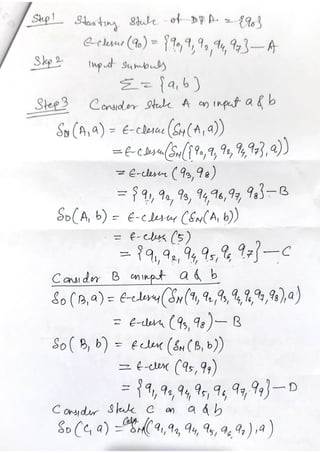 Step 1 Starting State of DFA = {q0}
ε-closure (q0) = {q0, q1, q2, q4, q7} — A
Step 2 Input Symbols
Σ = {a, b}
Step 3 Consider State A on input a & b
δD(A, a) = ε-closure (δN(A, a))
= ε-closure (δN({q0, q1, q2, q4, q7}, a))
= ε-closure (q3, q8)
= {q1, q2, q3, q4, q6, q7, q8} — B
δD(A, b) = ε-closure (δN(A, b))
= ε-closure (5)
= {q1, q2, q4, q5, q6, q7} — C
Consider B on input a & b
δD(B, a) = ε-closure (δN(q1, q2, q3, q4, q6, q7, q8), a)
= ε-closure (q3, q8) — B
δD(B, b) = ε closure (δN(B, b))
= ε-closure (q5, q9)
= {q1, q2, q4, q5, q6, q7, q9} — D
Consider State C on a & b
δD(C, a) = δN((q1, q2, q4, q5, q6, q7), a)